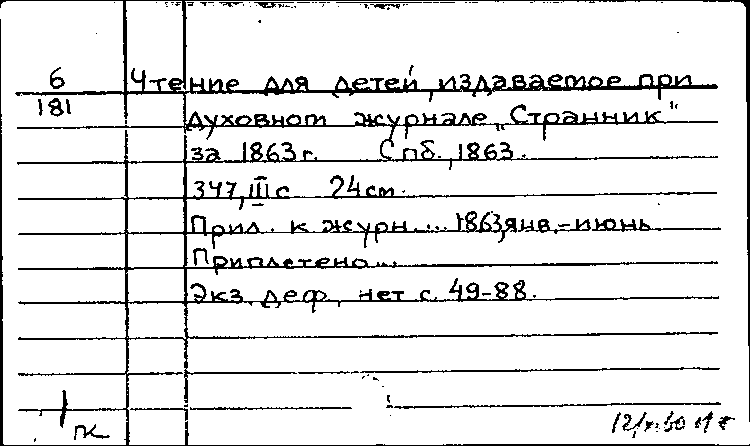 6
181
Чтение для детей, издаваемое при
духовном журнале „Странник"
за 1863 г. Спб., 1863.
347, III с 24 см.
Прил. к журн... 1863, янв.-июнь
Приплетено...
Экз. деф., нет с. 49-88.
пк